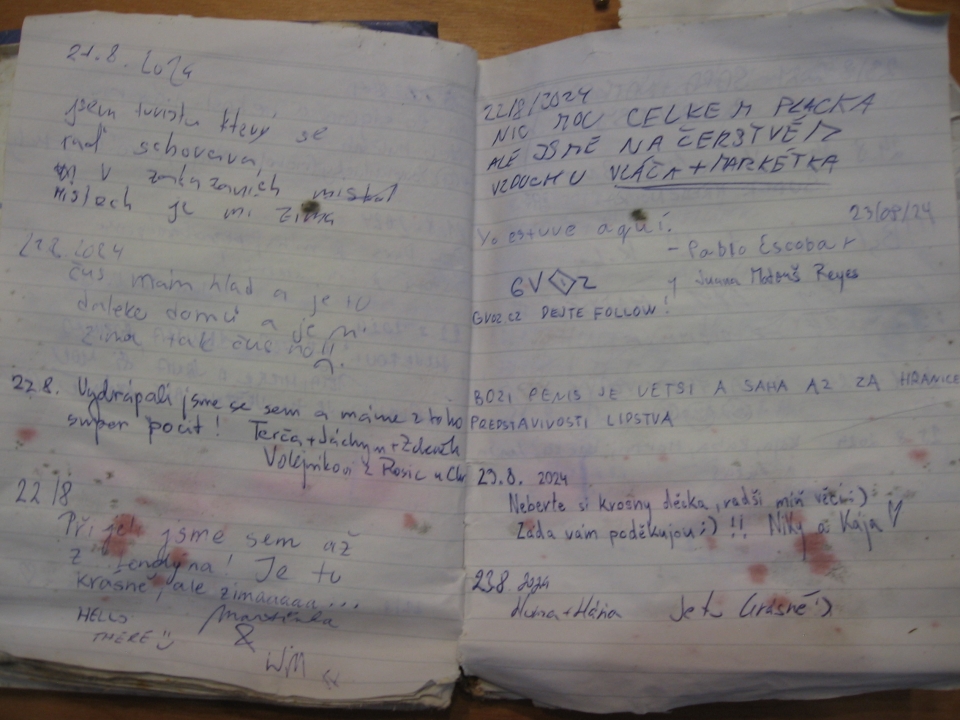 21.8. 2024
jsem turista který se
rád schovává
v zakázaních
místech je mi zima
22.8. 2024
čus mám hlad a je to
daleko domů a je mi
zima tak čus no!!
22.8. Vydrápali jsme se sem a máme z toho
super pocit! Terča+Jáchym+Zdeněk
Volejníkovi z Rosic u Chr
22/8
Přijeli jsme sem až
z Londýna! Je tu
krásně, ale zimaaaaa...
HELLO
THERE
Martinka
&
WM
22/8/2024
NIC MOC CELKEM PLACKA
ALE JSME NA ČERSTVÉM
VZDUCHU VLÁĎA + MARKÉTKA
23/08/24
Yo estuve aquí.
- Pablo Escobar
y Juana Reyes
GVOZ
GVOZ.CZ DEJTE FOLLOW!
BOZI PENIS JE VETSI A SAHA AZ ZA HRANICE
PREDSTAVIVOSTI LIDSTVA
23.8. 2024
Neberte si krosny děcka, radši míň věcí :)
Záda vám poděkujou ;) !! Niky a Kája ♡
23.8 2024
Je tu krásně :)